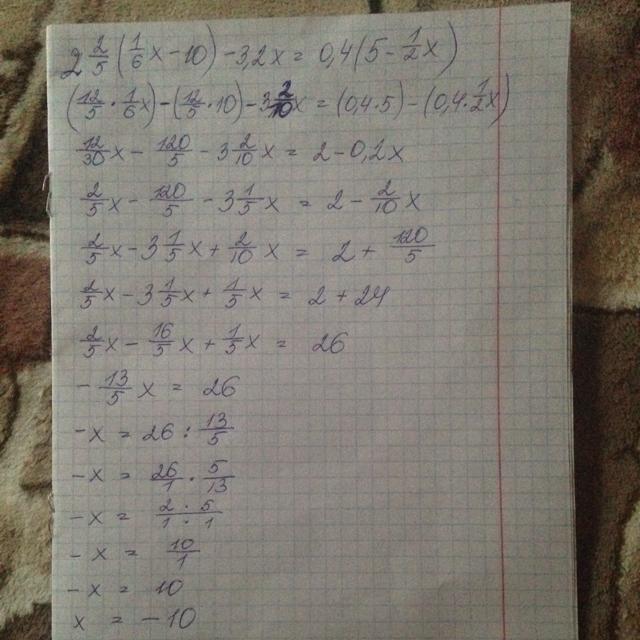 2 2/5 (1/6 x - 10) - 3,2x = 0,4(5 - 1/2 x)
(12/5 · 1/6 x) - (12/5 · 10) - 3 2/10 x = (0,4 · 5) - (0,4 · 1/2 x)
12/30 x - 120/5 - 3 2/10 x = 2 - 0,2x
2/5 x - 120/5 - 3 1/5 x = 2 - 2/10 x
2/5 x - 3 1/5 x + 2/10 x = 2 + 120/5
2/5 x - 3 1/5 x + 1/5 x = 2 + 24
2/5 x - 16/5 x + 1/5 x = 26
- 13/5 x = 26
- x = 26 : 13/5
- x = 26/1 · 5/13
- x = 2 · 5 / 1 · 1
- x = 10/1
- x = 10
x = - 10